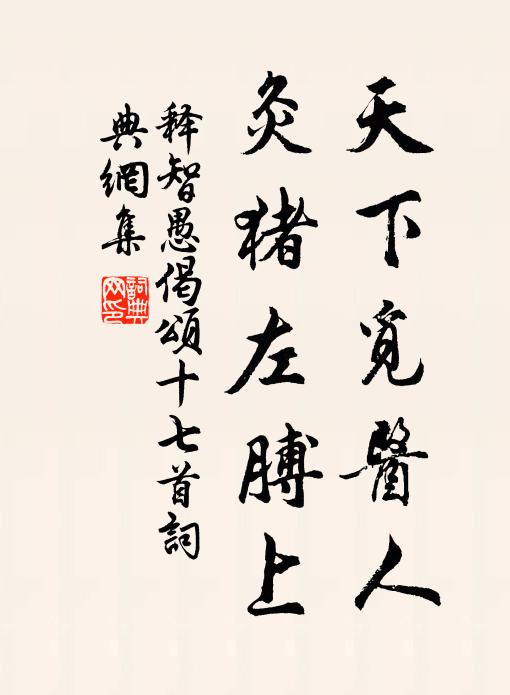 天下覓醫人
灸猪左膊上
释智愚偈頌十七首詞
典網集
詞典
网印